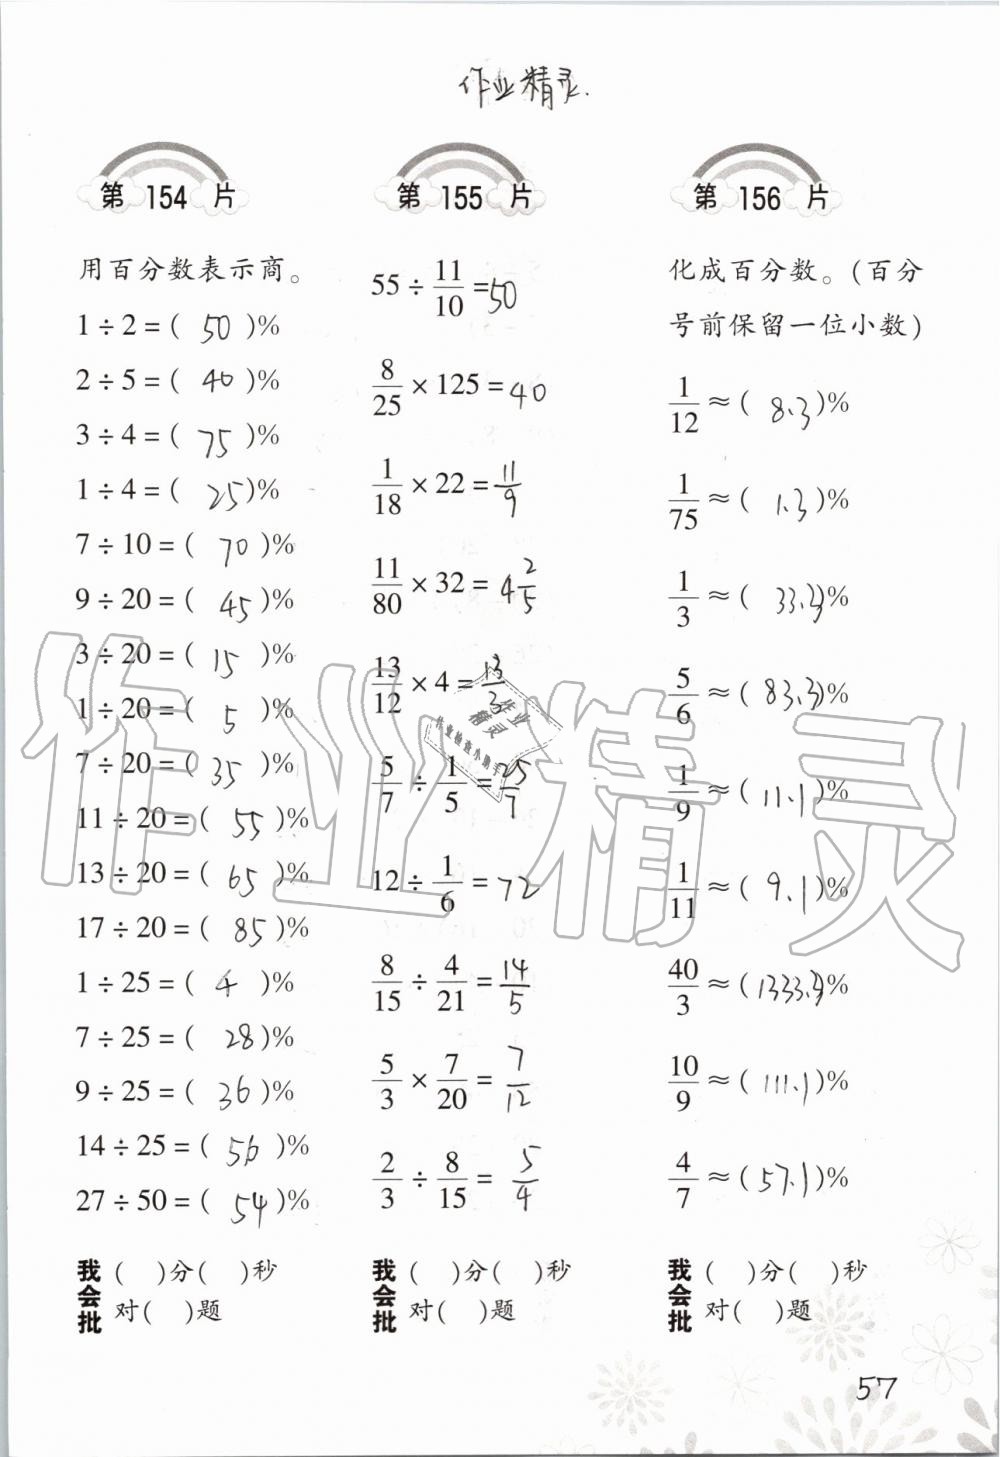 作业精灵.
第 154 片
用百分数表示商。
1 ÷ 2 = ( 50 )%
2 ÷ 5 = ( 40 )%
3 ÷ 4 = ( 75 )%
1 ÷ 4 = ( 25 )%
7 ÷ 10 = ( 70 )%
9 ÷ 20 = ( 45 )%
3 ÷ 20 = ( 15 )%
1 ÷ 20 = ( 5 )%
7 ÷ 20 = ( 35 )%
11 ÷ 20 = ( 55 )%
13 ÷ 20 = ( 65 )%
17 ÷ 20 = ( 85 )%
1 ÷ 25 = ( 4 )%
7 ÷ 25 = ( 28 )%
9 ÷ 25 = ( 36 )%
14 ÷ 25 = ( 56 )%
27 ÷ 50 = ( 54 )%
我会批 ( )分( )秒
对( )题
第 155 片
55 ÷ 11/10 = 50
8/25 × 125 = 40
1/18 × 22 = 11/9
11/80 × 32 = 4 2/5
13/12 × 4 = 13/3
5/7 ÷ 1/5 = 25/7
12 ÷ 1/6 = 72
8/15 ÷ 4/21 = 14/5
5/3 × 7/20 = 7/12
2/3 ÷ 8/15 = 5/4
我会批 ( )分( )秒
对( )题
第 156 片
化成百分数。(百分
号前保留一位小数)
1/12 ≈ ( 8.3 )%
1/75 ≈ ( 1.3 )%
1/3 ≈ ( 33.3 )%
5/6 ≈ ( 83.3 )%
1/9 ≈ ( 11.1 )%
1/11 ≈ ( 9.1 )%
40/3 ≈ ( 1333.3 )%
10/9 ≈ ( 111.1 )%
4/7 ≈ ( 57.1 )%
我会批 ( )分( )秒
对( )题
57
作业精灵
作业
精灵
作业检查小助手